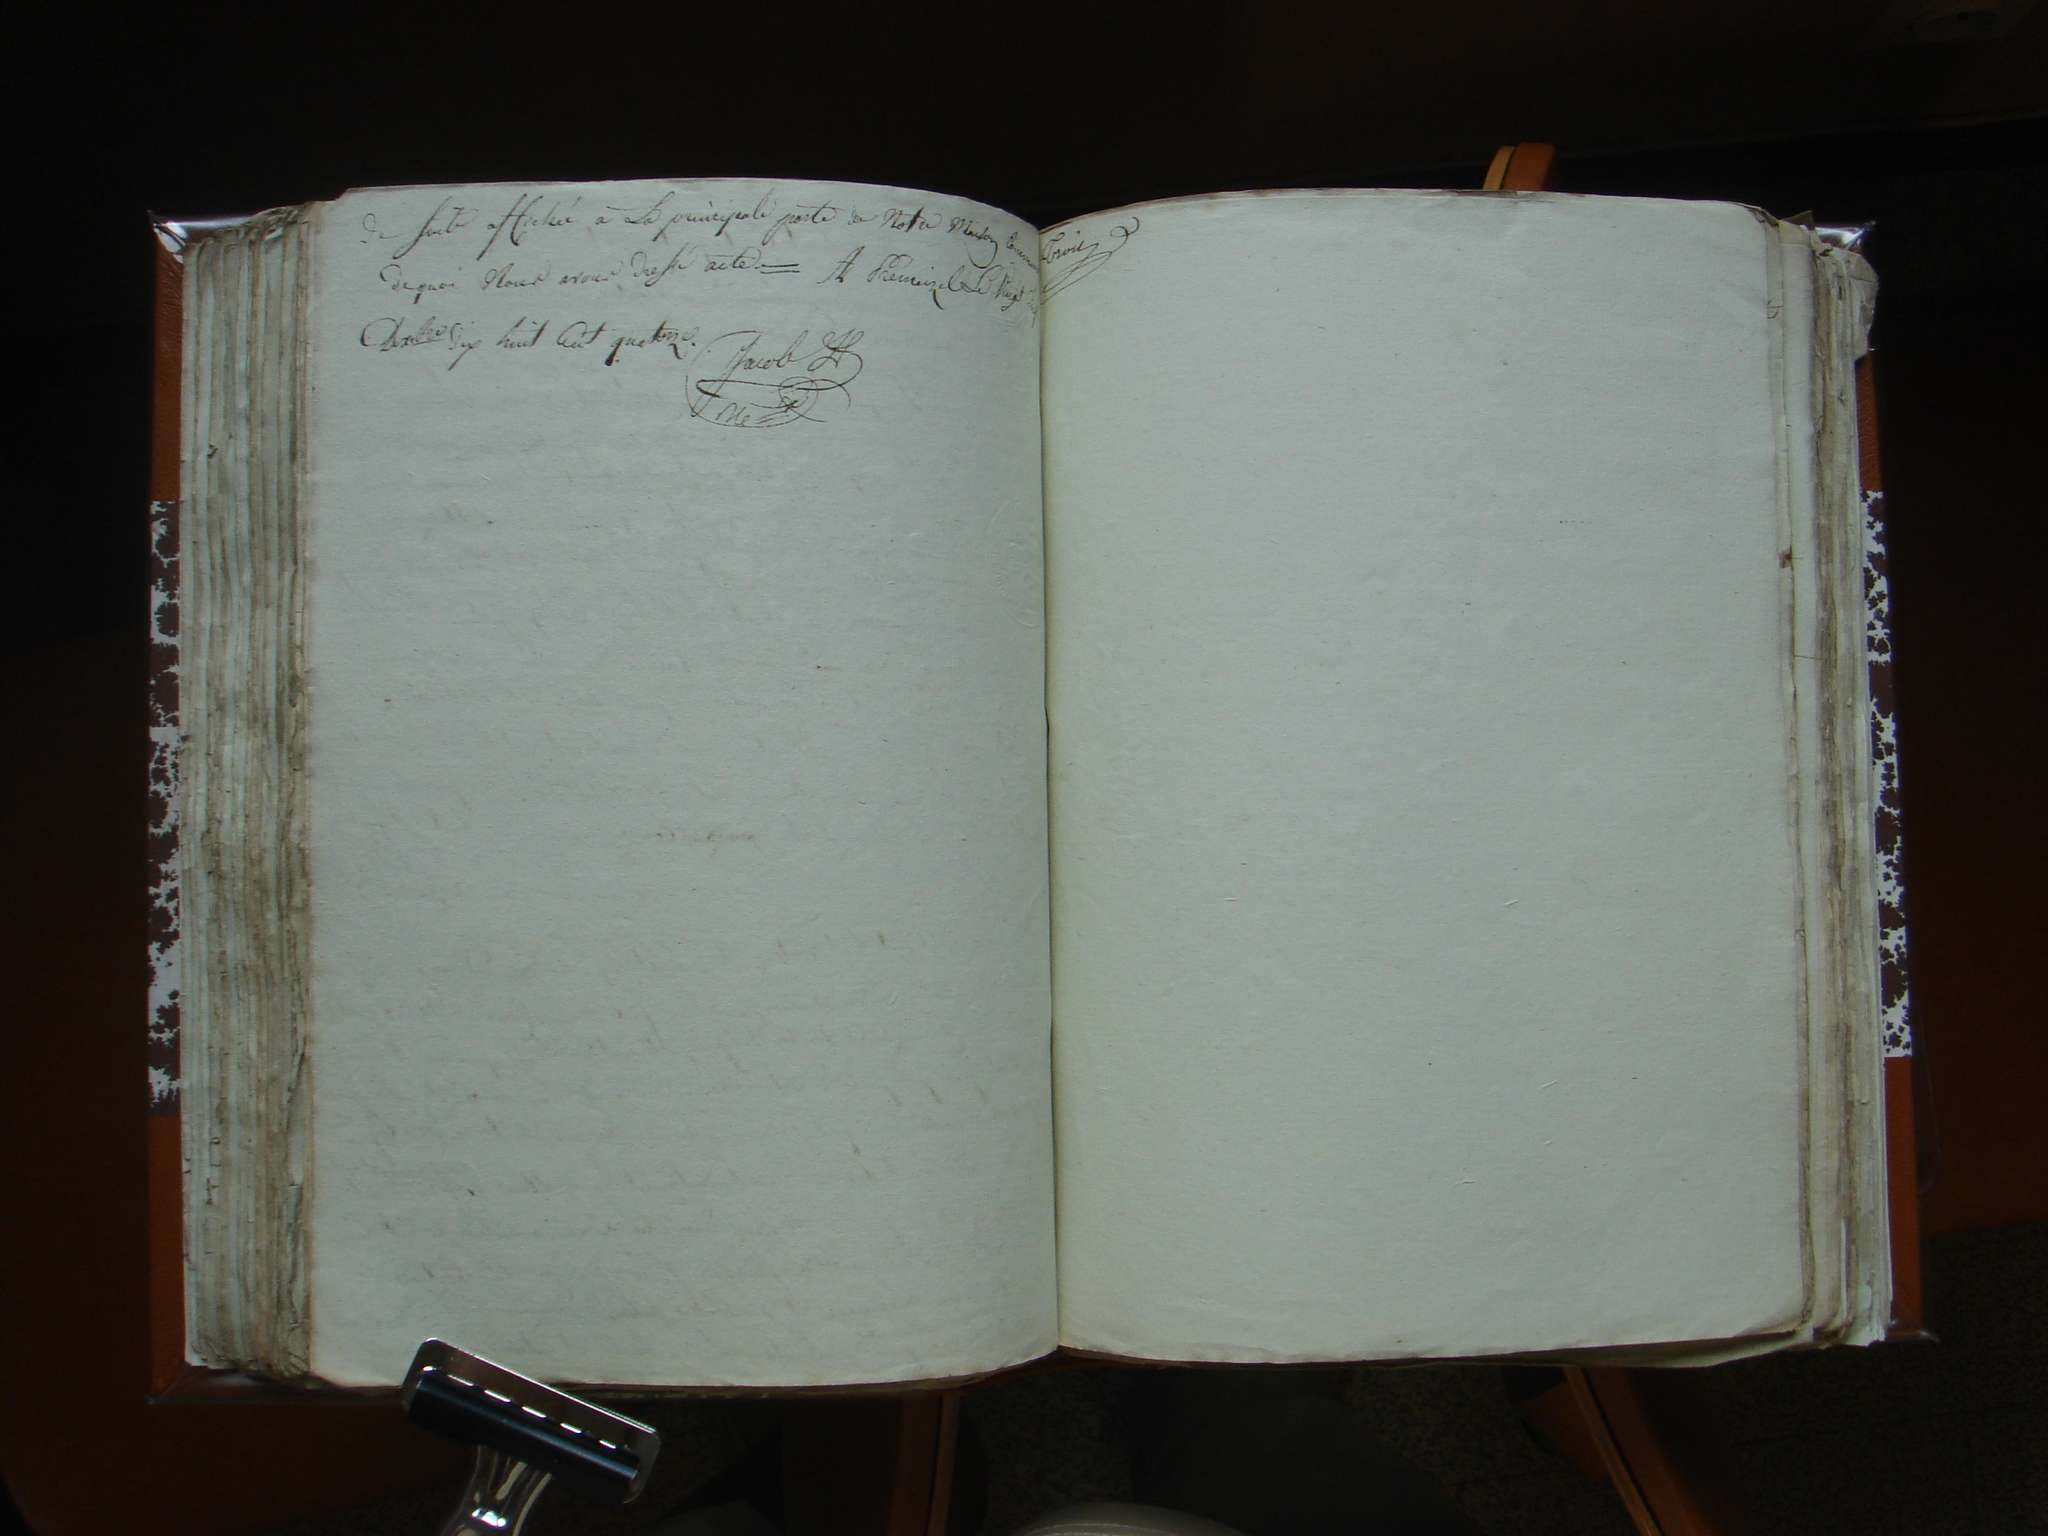 De suite affiché à La principale porte de Notre Maison Commune
De quoi Nous avons dressé acte. = A Fremizel Le vingt
Dix huit Cent quatorze.
Jacob H
Me